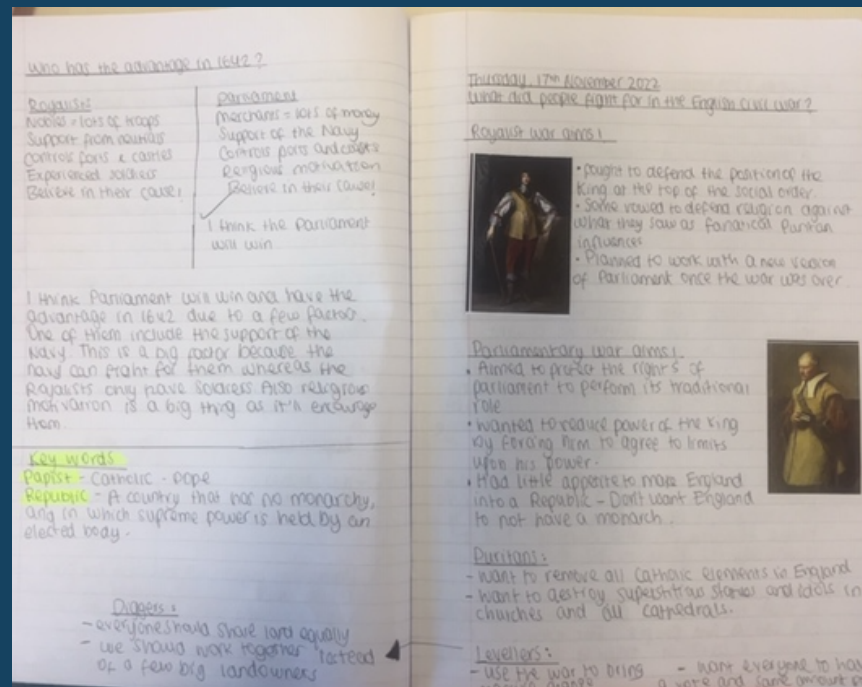 Who has the advantage in 1642?
Royalists
Nobles = lots of troops
Support from neutrals
Controls ports & castles
Experienced soldiers
Believe in their cause!
Parliament
Merchants = lots of money
Support of the Navy
Controls ports and
Religious motivation
Believe in their cause!
I think the Parliament
will win
I think Parliament will win and have the
advantage in 1642 due to a few factors.
One of them include the support of the
Navy. This is a big factor because the
navy can fight for them whereas the
Royalists only have soldiers. Also religious
motivation is a big thing as it'll encourage
them.
Key words
Papist - Catholic - Pope
Republic - A country that has no monarchy,
and in which supreme power is held by an
elected body.
Diggers:
- everyone should share land equally
- we should work together instead
of a few big landowners
Thursday 17th November 2022
What did people fight for in the English civil war?
Royalist war aims!
• Fought to defend the position of the
King at the top of the social order.
• Some vowed to defend religion against
what they saw as fanatical Puritan
influences
• Planned to work with a new version
of Parliament once the war was over.
Parliamentary war aims!
• Aimed to protect the rights of
parliament to perform its traditional
role
• wanted to reduce power of the King
by forcing him to agree to limits
upon his power.
• Had little appetite to make England
into a Republic - Don't want England
to not have a monarch.
Puritans:
- want to remove all Catholic elements in England
- want to destroy superstitious statues and idols in
churches and all cathedrals.
Levellers:
- use the war to bring
- want everyone to have
a vote and same amount